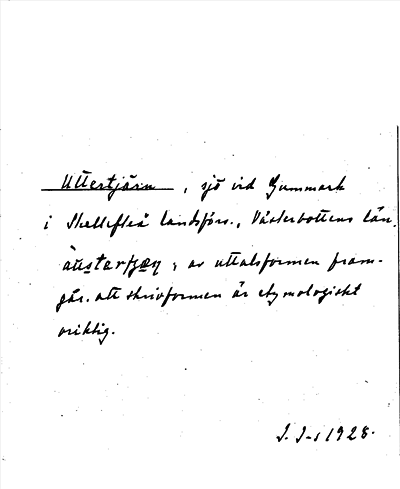 Uttertjärn, sjö vid Gummark
i Skellefteå landsförs., Västerbottens län.
av uttalsformen fram-
går att skrivformen är etymologiskt
oriktig.
J. J-s 1928.